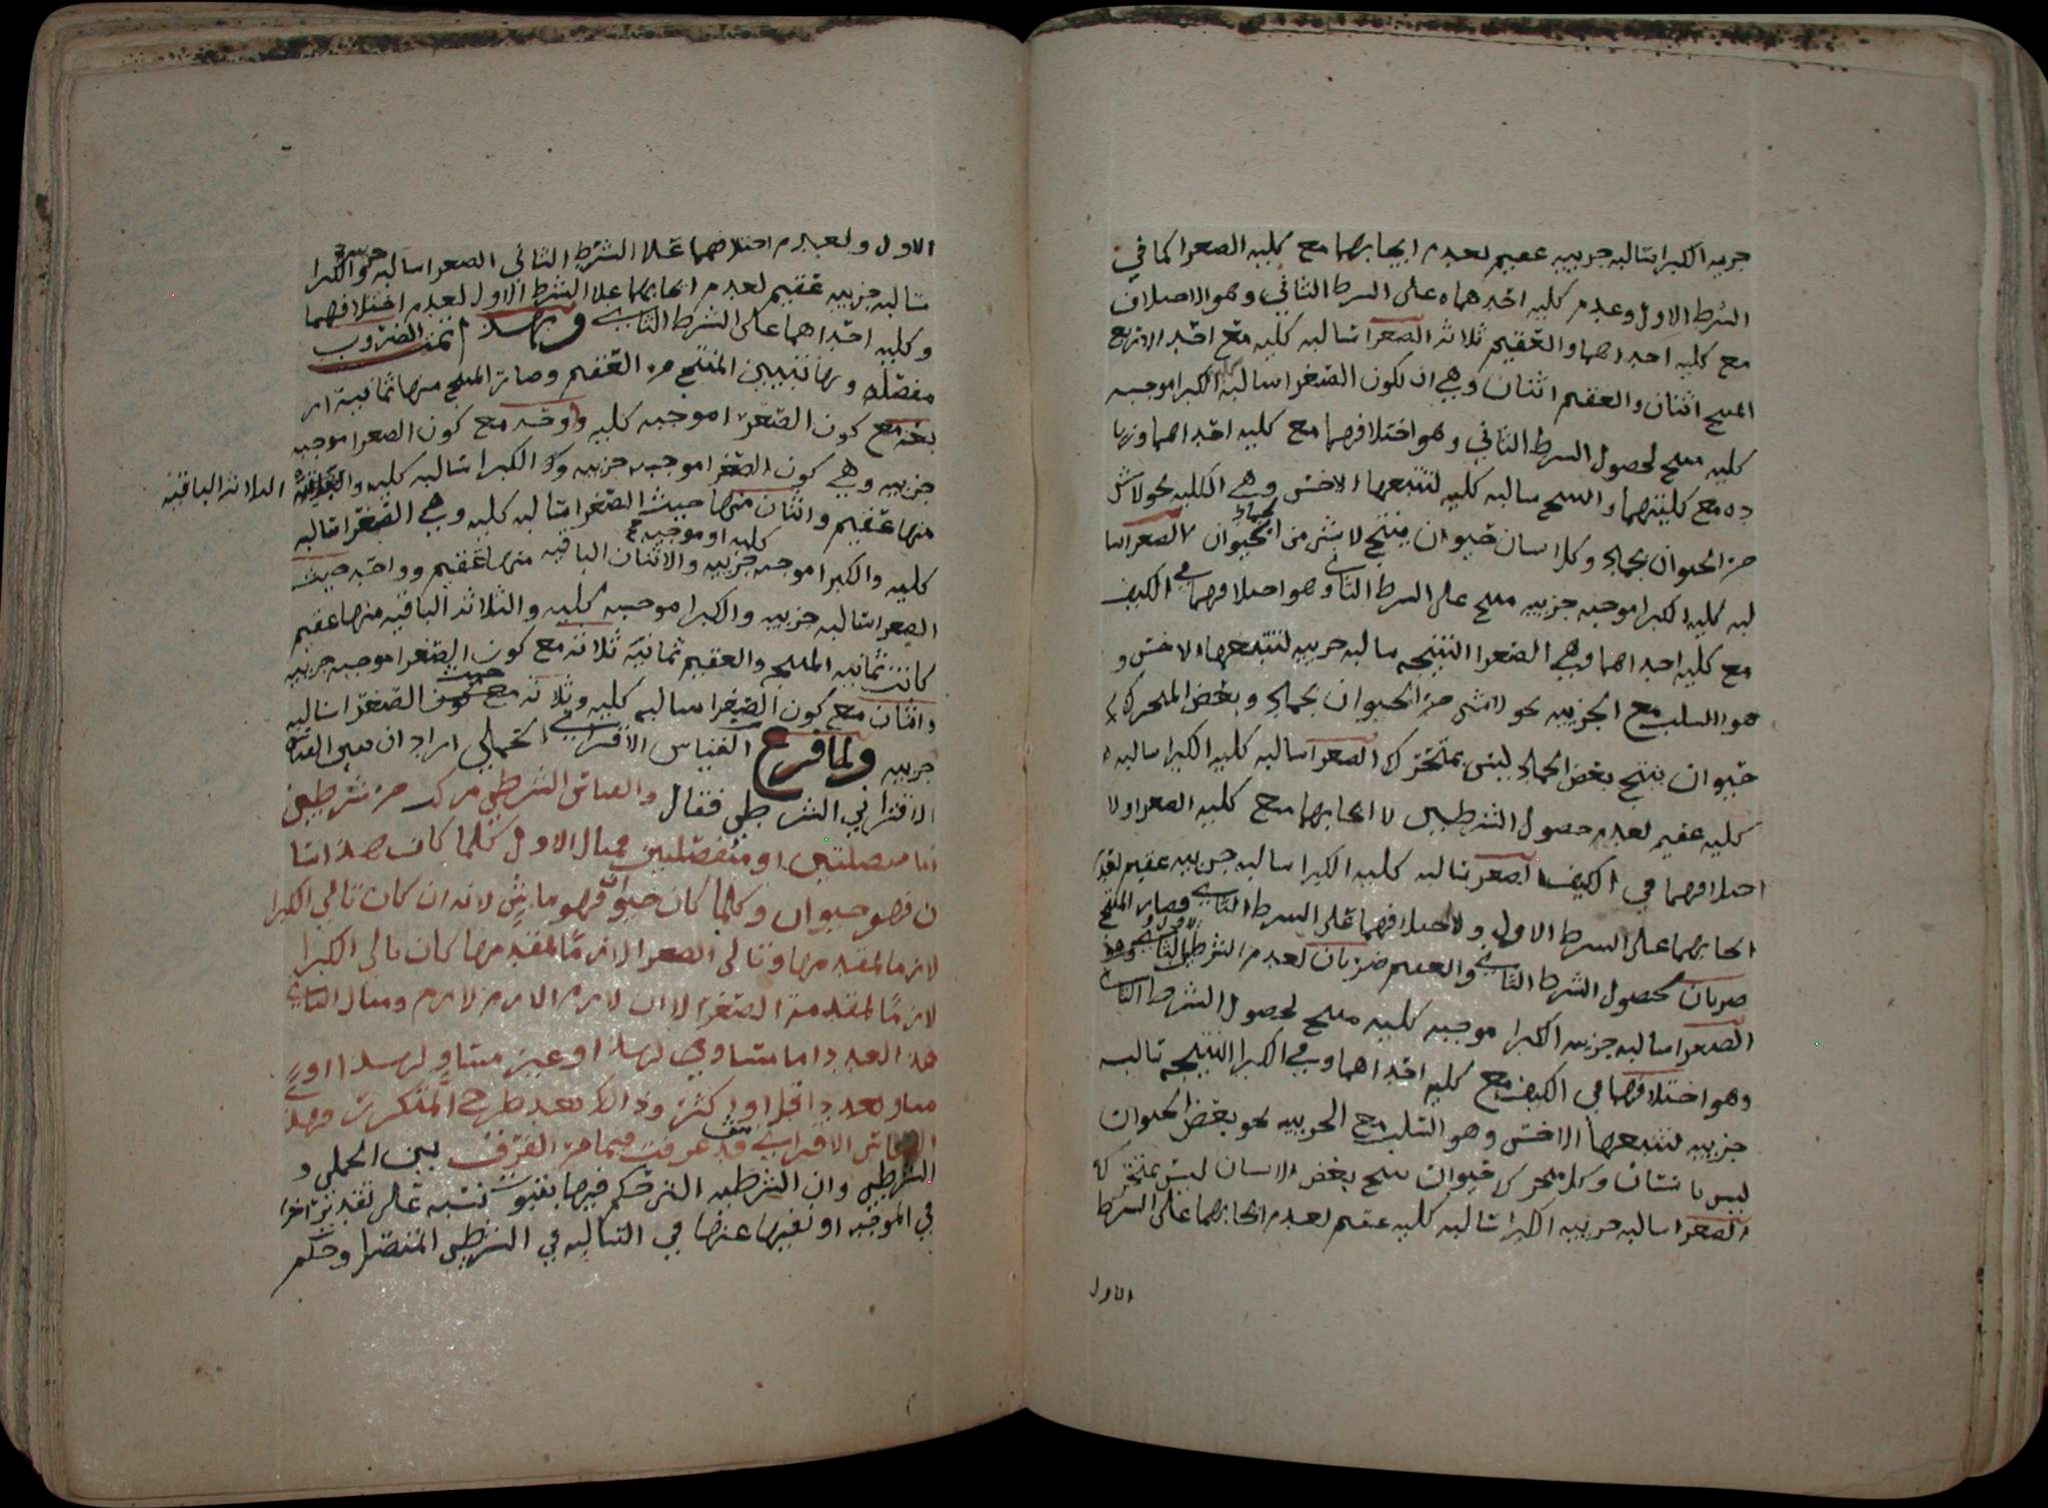 جزييه الكبرا سالبه جزييه عقيم لعدم ايجابهما مع كليه الصغرا كما في
الشرط الاول وعدم كليه احدهما على الشرط الثاني وهو الاختلاف
مع كليه احداهما والعقيم ثلاثه الصغرا سالبه كليه مع احد الاربع
المنتج اثنان والعقيم اثنان وهي ان تكون الصغرا سالبه كليه الكبرا موجبه
كليه منتج لحصول الشرط الثاني وهو اختلافهما مع كليه احداهما وزيا
ده مع كليتهما والنتيجه سالبه كليه لتتبعها الاخس وهي الكليه نحو لا شي
من الحيوان بجماد وكل انسان حيوان ينتج لا شي من الصغرا سا
لبه كليه الكبرا موجبه جزييه منتج على الشرط الثاني وهو اختلافهما في الكيف
مع كليه احداهما وهي الصغرا النتيجه سالبه جزييه لتتبعها الاخس و
هو السلب مع الجزييه نحو لا شي من الحيوان بجماد وبعض المتحرك
حيوان ينتج بعض الجماد ليس بمتحرك الصغرا سالبه كليه الكبرا سالبه
كليه عقيم لعدم حصول الشرطين لا ايجابهما مع كليه الصغرا ولا
اختلافهما في الكيف الصغرا سالبه كليه الكبرا سالبه جزييه عقيم لعدم
ايجابهما على الشرط الاول ولاختلافهما على الشرط الثاني وصار المنتج
ضربان لحصول الشرط الثاني والعقيم ضربان لعدم الشرط
الصغرا سالبه جزييه الكبرا موجبه كليه منتج لحصول الشرط الثاني
وهو اختلافهما في الكيف مع كليه احداهما وهي الكبرا النتيجه سالبه
جزييه لتتبعها الاخس وهو السلب مع الجزييه نحو بعض الحيوان
ليس بانسان وكل متحرك حيوان ينتج بعض الانسان ليس بمتحرك
الصغرا سالبه جزييه الكبرا سالبه كليه عقيم لعدم ايجابهما على الشرط
الاول
الاول ولعدم اختلافهما علا الشرط الثاني الصغرا سالبه جزييه والكبرا
سالبه جزييه عقيم لعدم ايجابهما علا الشرط الاول لعدم اختلافهما
وكليه احداهما على الشرط الثاني وبهذا تمت الضروب
مفصله وبها تبيين المنتج من العقيم وصار المنتج منها ثمانيه ار
بعه مع كون الصغرا موجبه كليه وواحد مع كون الصغرا موجبه
جزييه وهي كون الصغرا موجبه جزييه والكبرا سالبه كليه الثلاثه الباقيه
منها عقيم واثنان منها حيث الصغرا سالبه كليه وهي الصغرا سالبه
كليه والكبرا موجبه كليه او موجبه جزييه والاثنان الباقيه منها عقيم وواحد حيث
الصغرا سالبه جزييه والكبرا موجبه كليه والثلاثه الباقيه منها عقيم
كانت ثمانيه المنتج والعقيم ثمانيه ثلاثه مع كون الصغرا موجبه جزييه
واثنان مع كون الصغرا سالبه كليه وثلاثه حيث الصغرا سالبه
جزييه ولما فرغ القياس الاقتراني الحملي اراد ان يبين القياس
الاقتراني الشرطي فقال والقياس الشرطي مركب من شرطيين
اما متصلتين او منفصلتين مثال الاول كلما كان هذا انسا
ن فهو حيوان وكلما كان حيوان فهو ماش لانه ان كان تالي الكبرا
لازما لمقدمها وتالي الصغرا لازما لمقدمها كان تالي الكبرا
لازما لمقدمة الصغرا لان لازم الازم لازم ومثال الثاني
هذا العدد اما متساوي لهذا او غير متساو لهذا او
مساو لعدد اقل او اكثر وذالك بعد طرح المتكررت وهذا
القياس الاقتراني قد عرفت فيما مر الفرق بين الحملي و
الشرطي وان الشرطيه التي حكم فيها بثبوت نسبه على تقدير اخرا
في الموجبه او نفيها عنها في السالبه في الشرطي المتصل وحكم